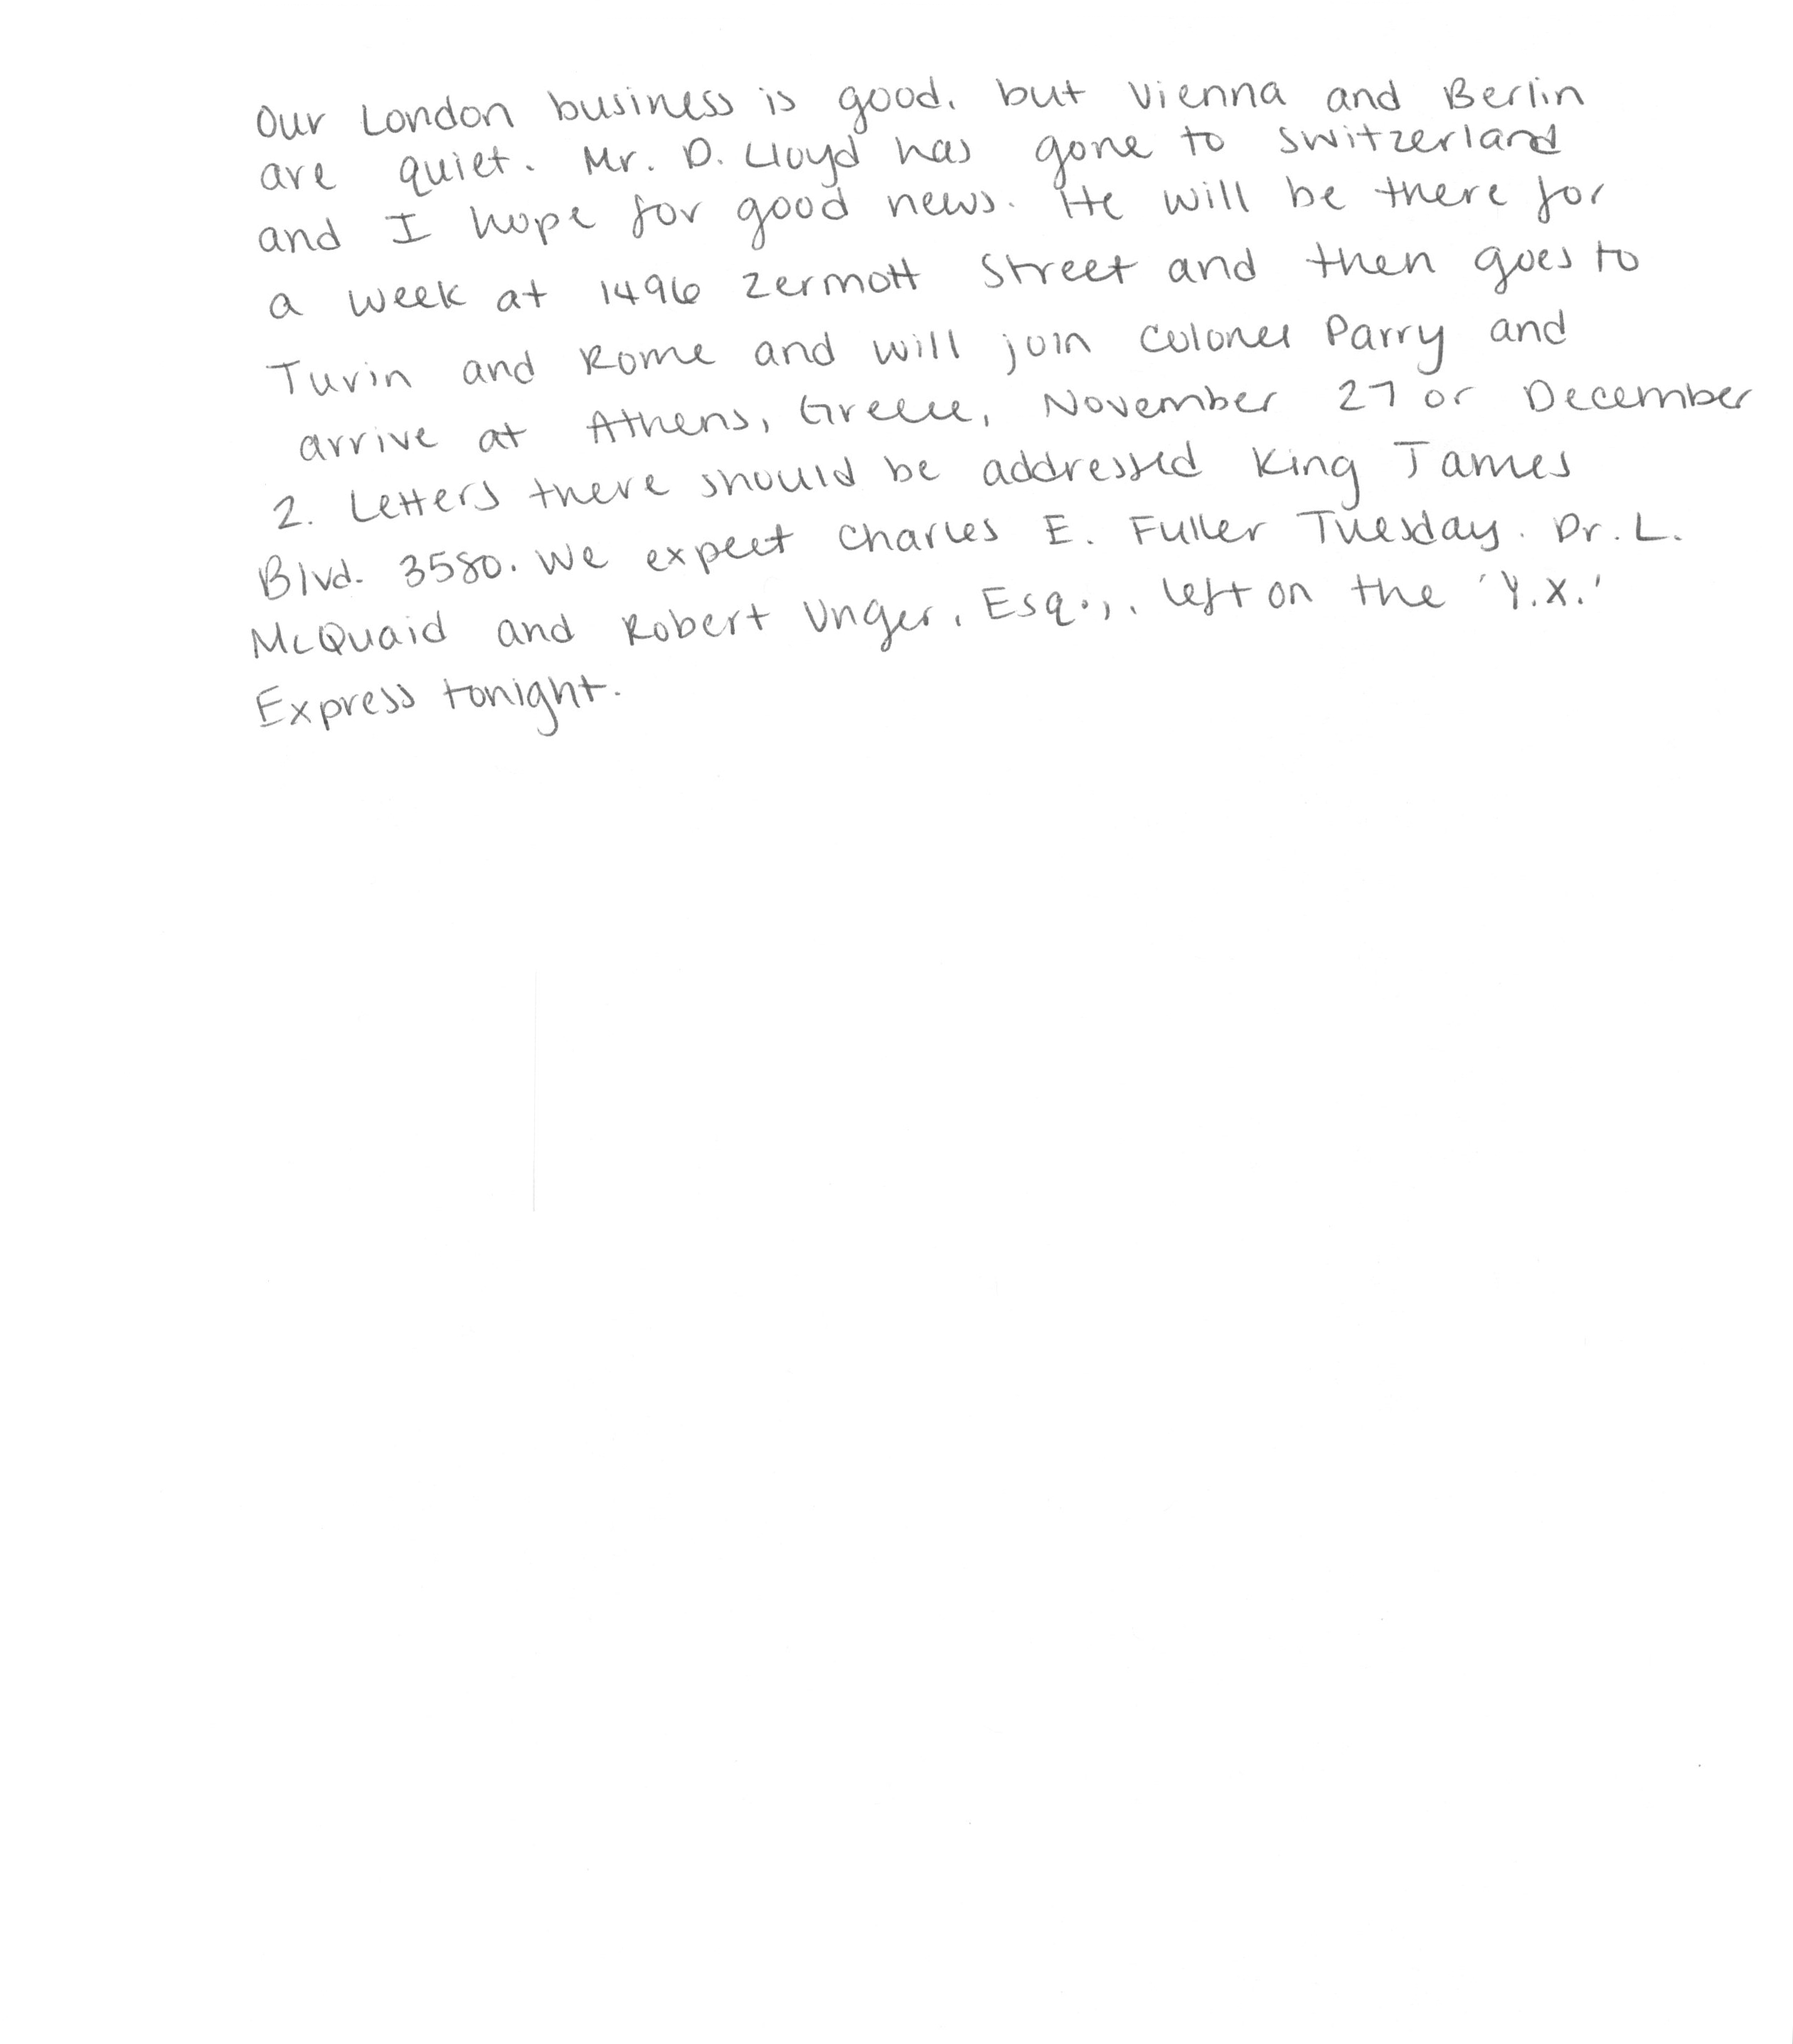 Our London business is good, but Vienna and Berlin
are quiet. Mr. D. Lloyd has gone to Switzerland
and I hope for good news. He will be there for
a week at 1496 Zermott Street and then goes to
Turin and Rome and will join Colonel Parry and
arrive at Athens, Greece, November 27 or December
2. Letters there should be addressed King James
Blvd. 3580. We expect Charles E. Fuller Tuesday. Dr. L.
McQuaid and Robert Unger, Esq., left on the 'Y.X.'
Express tonight.